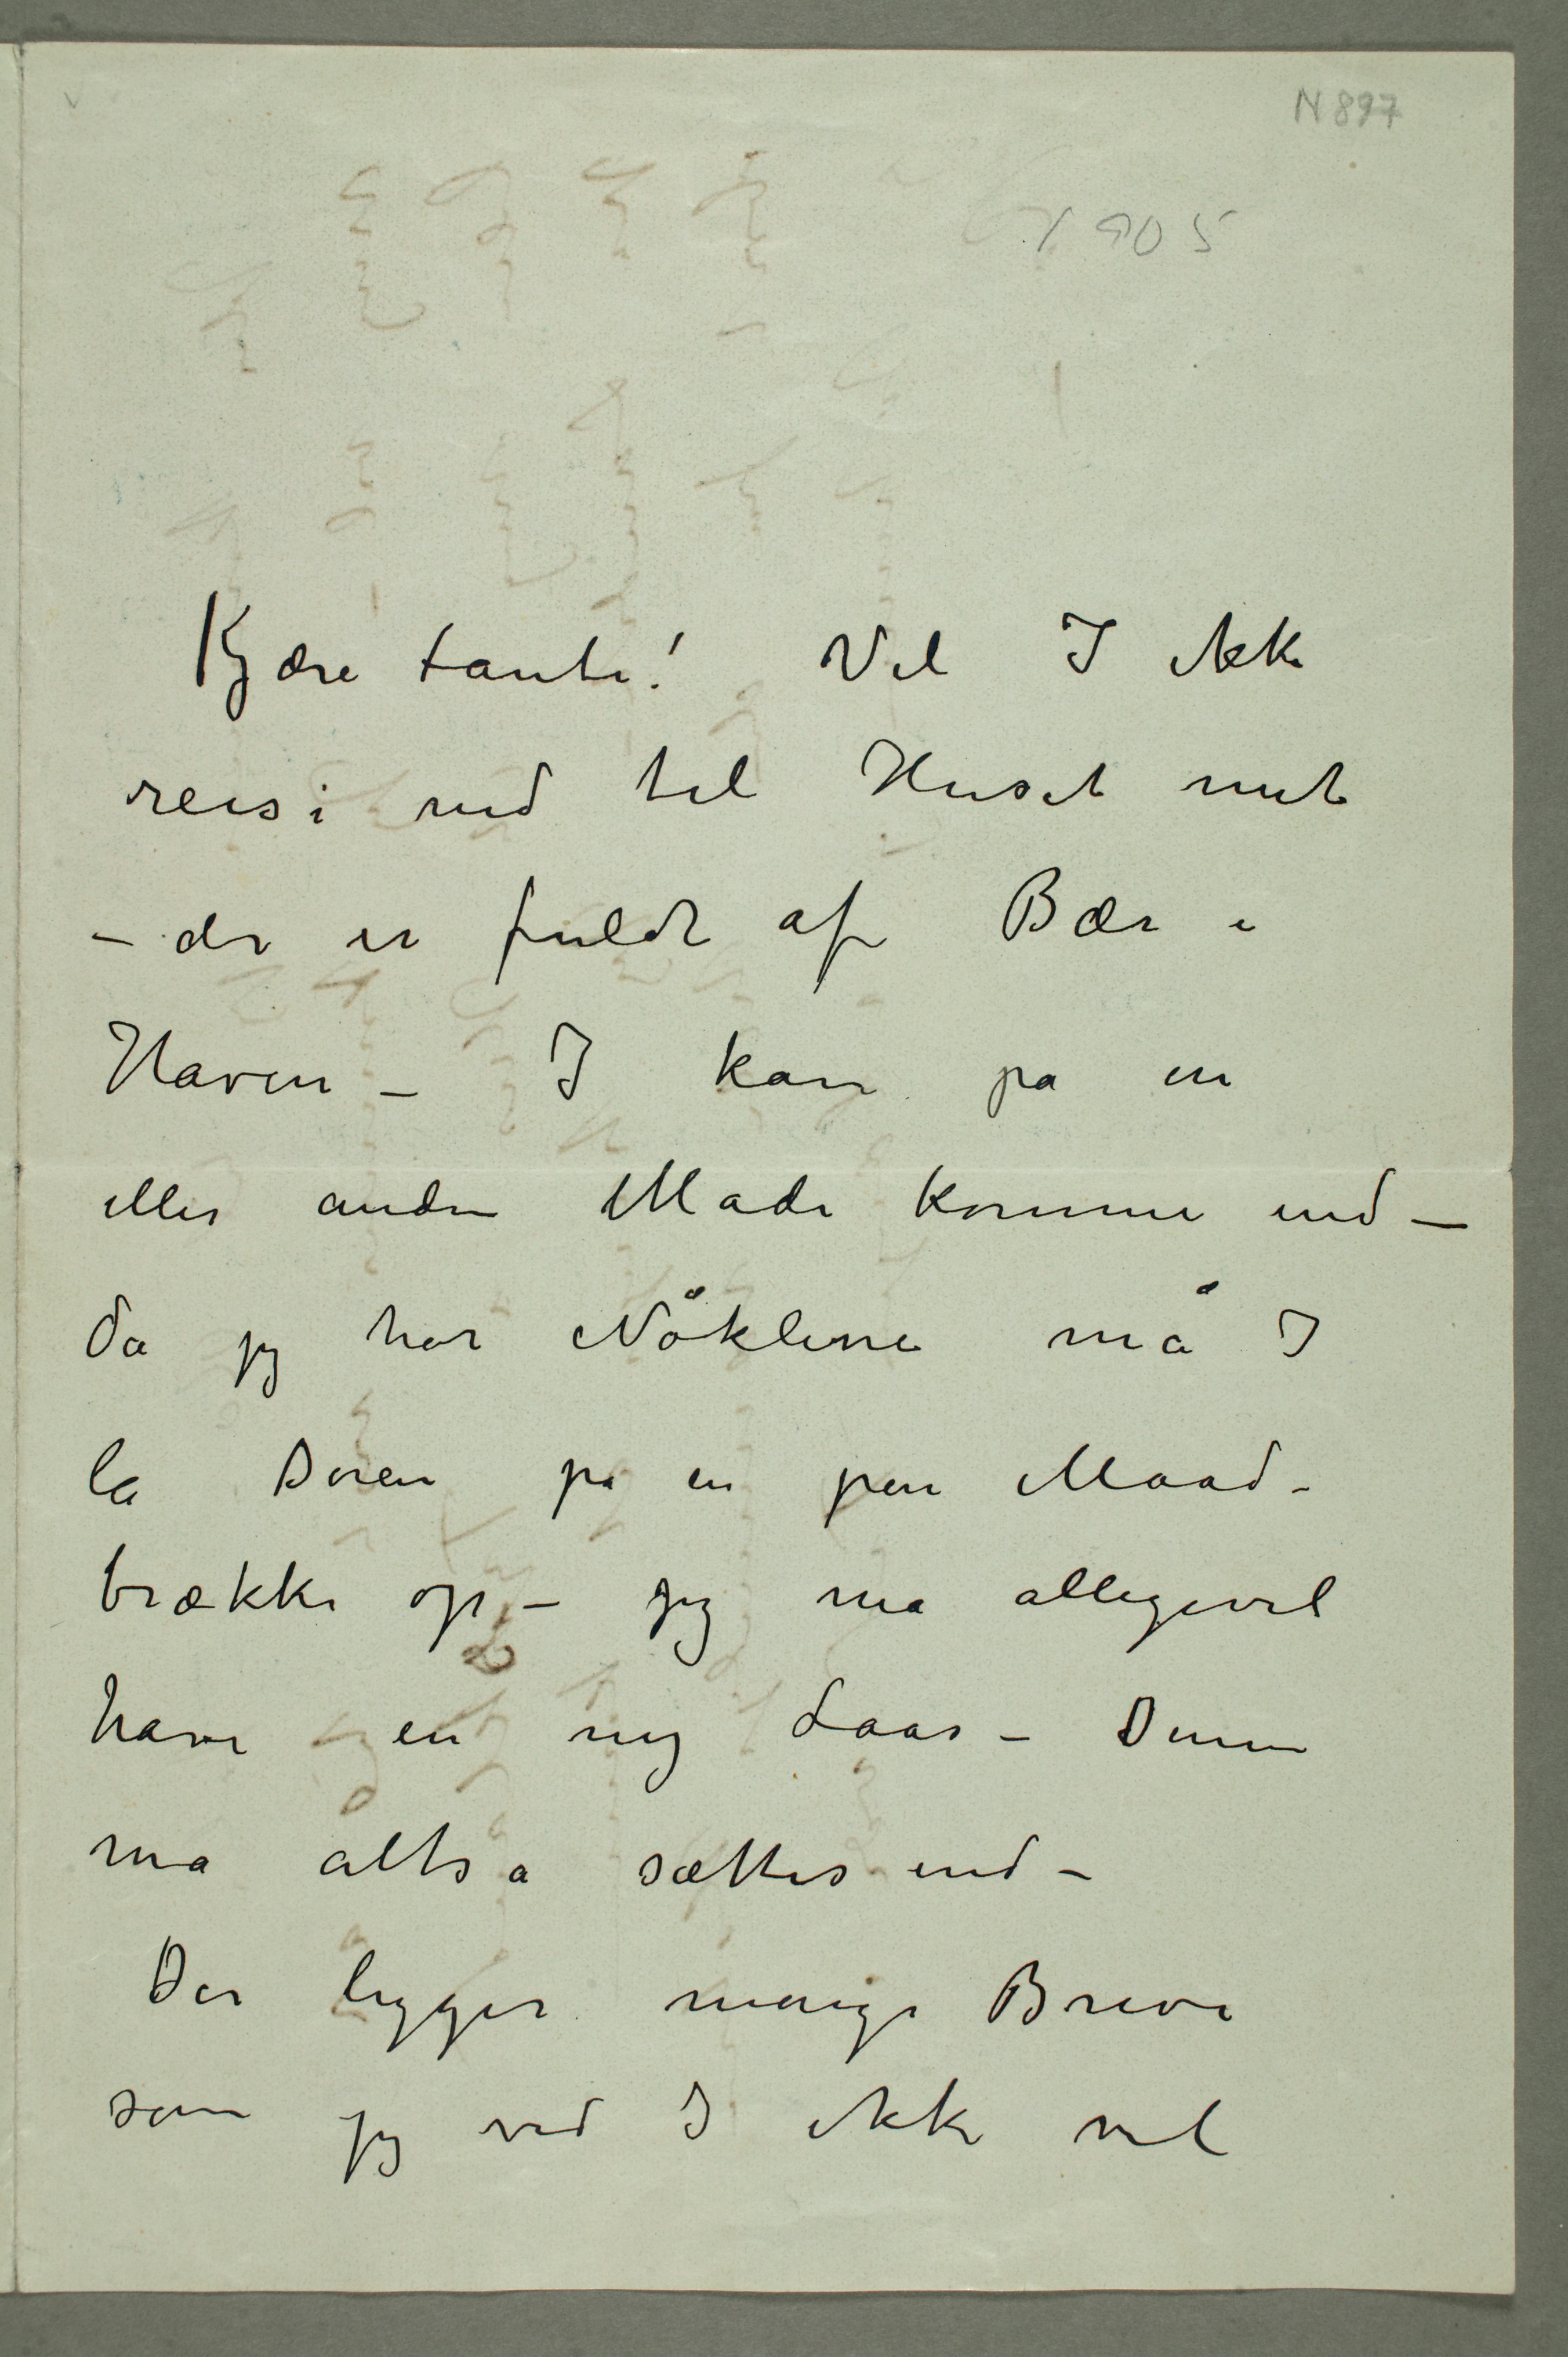 N 897
1905
Kjære tante! Vil I ikke
reise ned til Huset mit
– der er fuldt af Bær i
Haven – I kan pa en
eller anden Made komme ind –
da jeg har Nöklene må I
la Doren på en pen Maad-
brække op – jeg ma alligevel
have en ny Laas – Denne
ma altsa sættes ind –
Der ligger mange Breve
som jeg ved I ikke vil